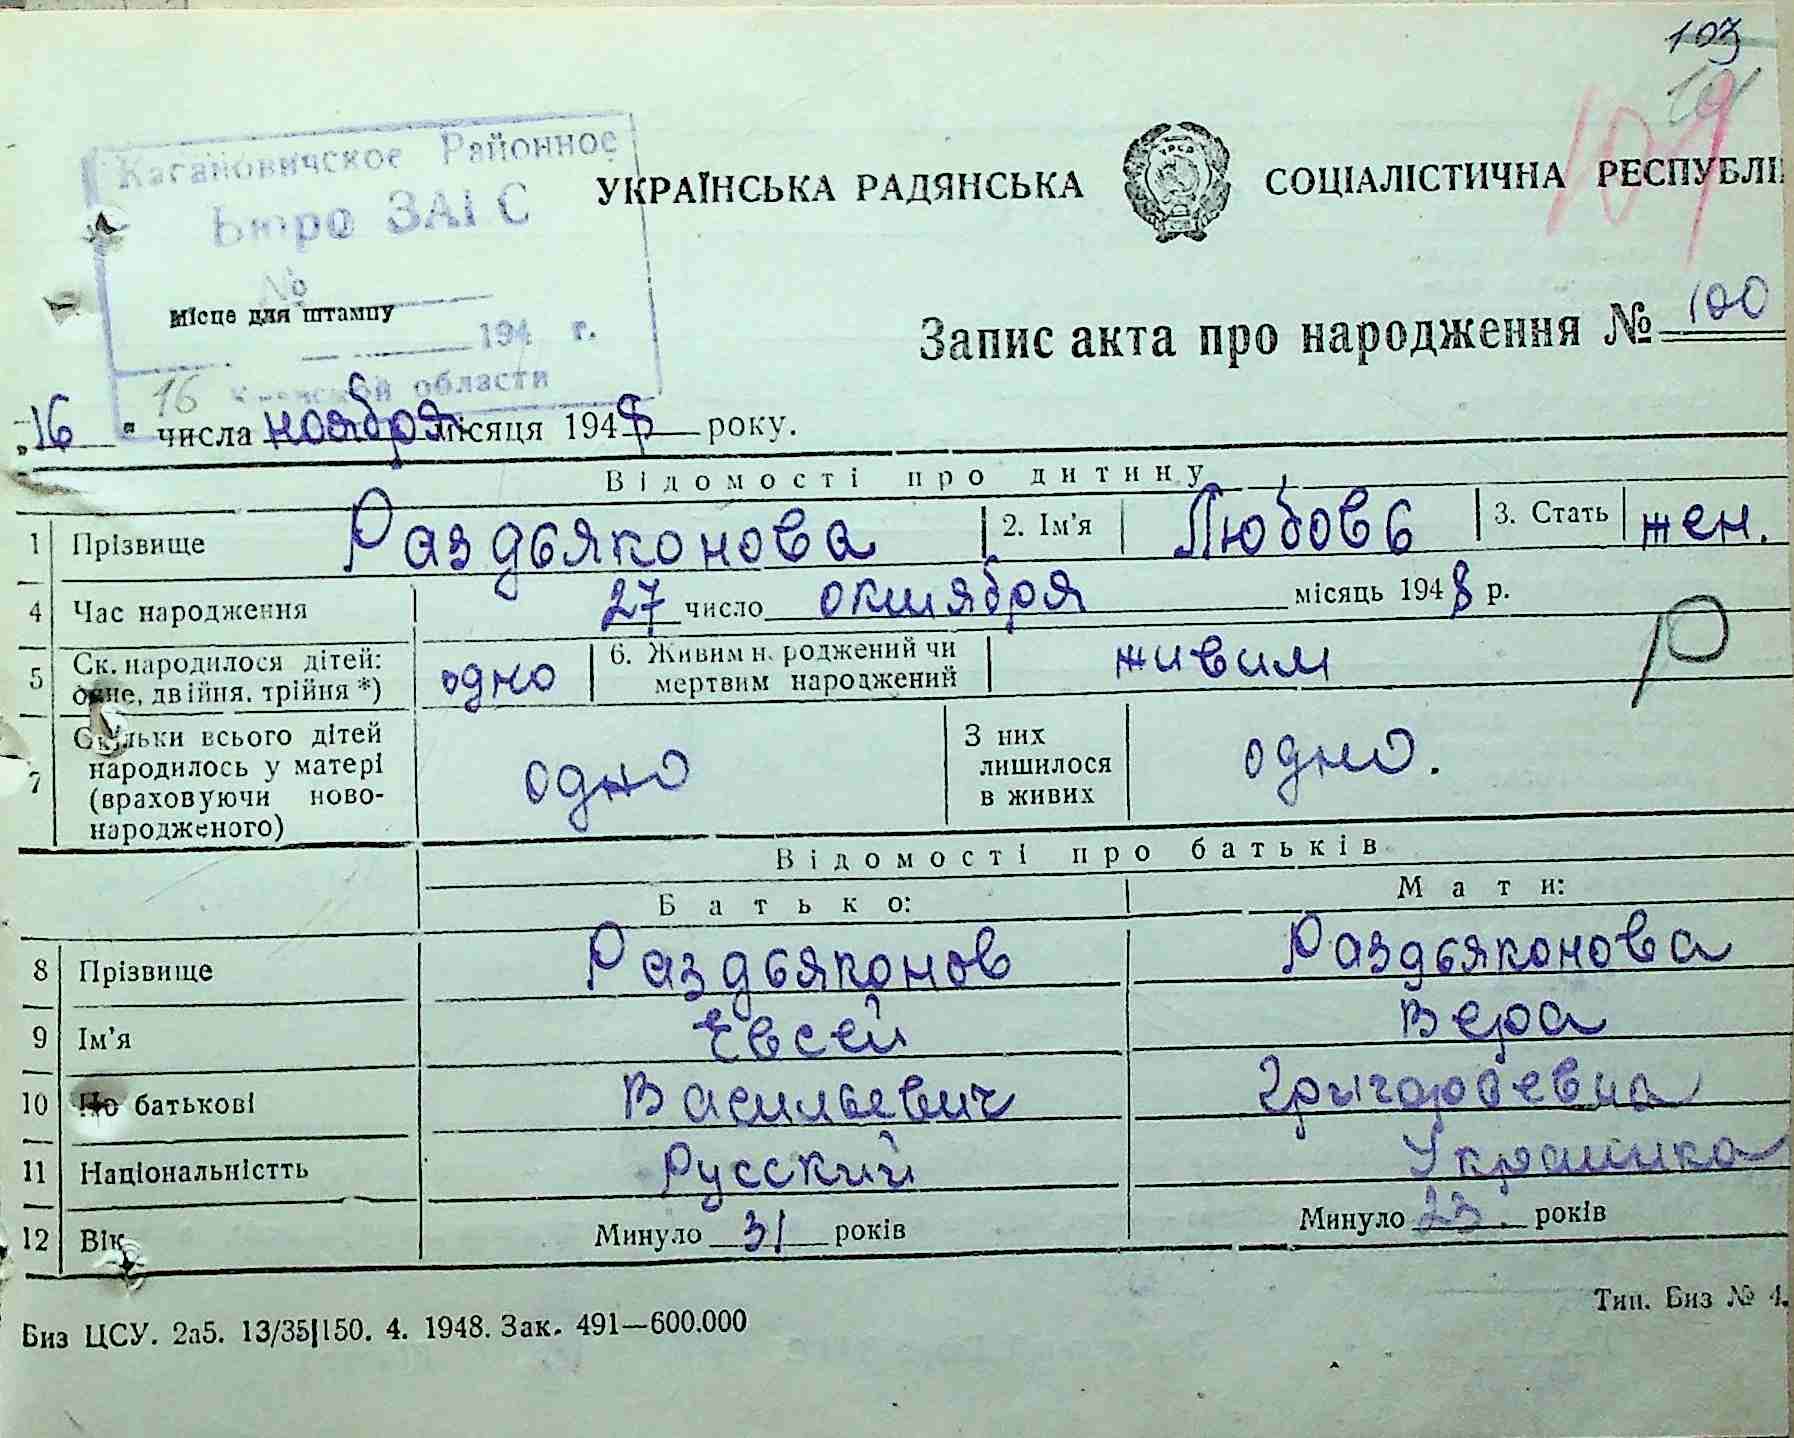 103
101
109
Кагановичское Районное
Бюро ЗАГС
№
194 г.
Киевской области
УКРАЇНСЬКА РАДЯНСЬКА СОЦІАЛІСТИЧНА РЕСПУБЛІ
Місце для штампу
Запис акта про народження № 100
16
„16" числа ноября місяця 1948 року.
Відомості про дитину
1 Прізвище Раздьяконова 2. Ім'я Любовь 3. Стать жен.
4 Час народження 27 число октября місяць 1948 р.
5 Ск. народилося дітей: одне, двійня, трійня *) одно 6. Живим н. роджений чи мертвим народжений живим
Р
7 Скільки всього дітей народилось у матері (враховуючи ново-народженого) одно З них лишилося в живих одно.
Відомості про батьків
Батько: Мати:
8 Прізвище Раздьяконов Раздьяконова
9 Ім'я Евсей Вера
10 По батькові Васильевич Григорьевна
11 Національністть Русский Украинка
12 Вік Минуло 31 років Минуло 23. років
Биз ЦСУ. 2а5. 13/35|150. 4. 1948. Зак. 491—600.000
Тип. Биз № 4.